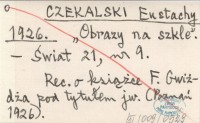 CZEKALSKI Eustachy
1926. „Obrazy na szkle".
– Świat 21, nr 9.
Rec. o książce F. Gwiż-
dża pod tytułem jw. (Poznań
1926).